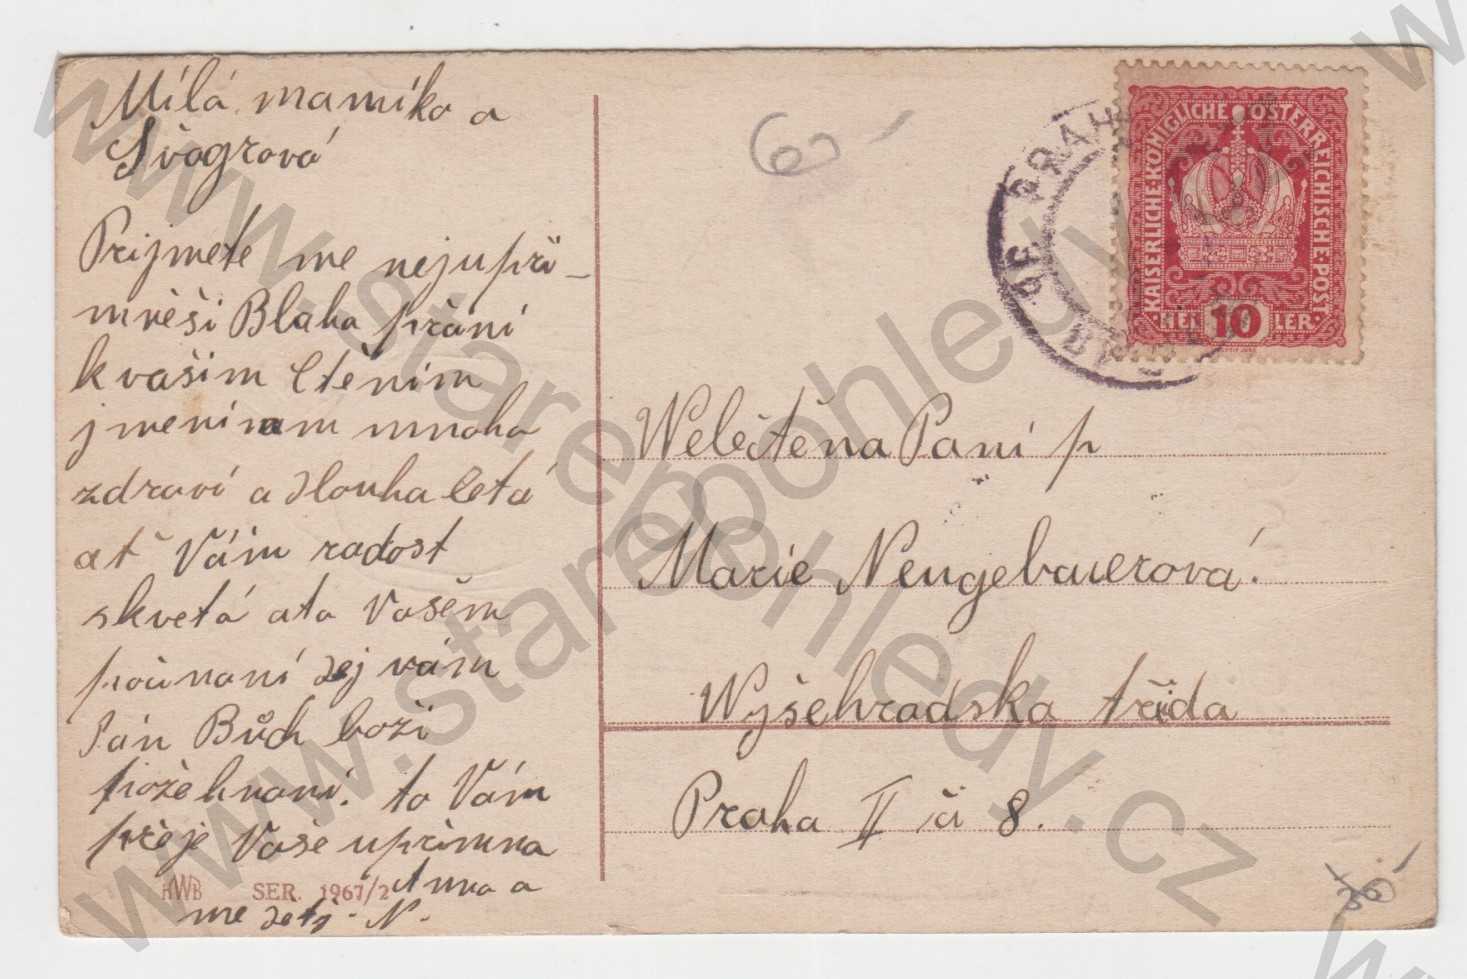 Milá mamiko a
Švogrová
Prijmete me nejupři-
mněši Blaha přani
k vašim Ctěním
jmeninam mnoha
zdraví a Hlouha letá
ať Vám radost
skvetá ato Vašém
počinaní dej vám
Pán Bůch boži
požehnani. to Vám
přeje Vaše uprimna
Anna a
me deti - N.
HWB SER. 1967/2
60-
PRAHA
KAISERLICHE·KÖNIGLICHE·ÖSTERREICHISCHE·POST·
HELLER
10
Welečtěna Pani p
Marie Neugebauerová.
Wyšehradska třída
Praha II či 8.
www.starepohledy.cz
www.starepohledy.cz